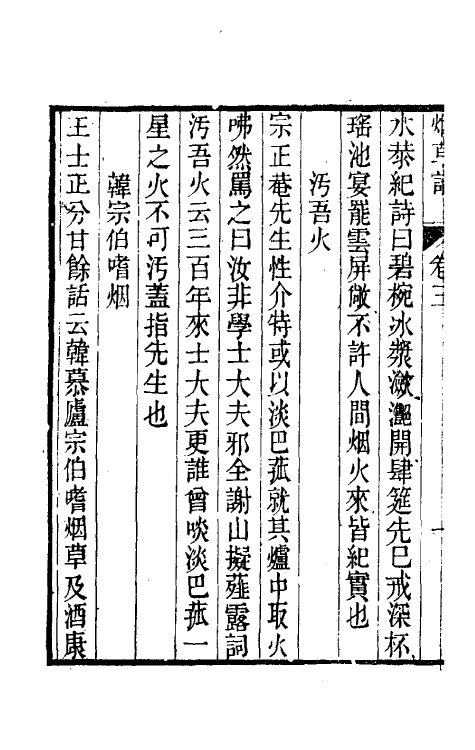 烟草譜 卷三 一
水恭紀詩曰碧椀冰漿瀲灔開肆筵先已戒深杯
瑤池宴罷雲屏敞不許人間烟火來皆紀實也
汚吾火
宗正菴先生性介特或以淡巴菰就其爐中取火
咈然罵之曰汝非學士大夫邪全謝山擬薤露詞
汚吾火云三百年來士大夫更誰曾啖淡巴菰一
星之火不可汚蓋指先生也
韓宗伯嗜烟
王士正分甘餘話云韓慕廬宗伯嗜烟草及酒康